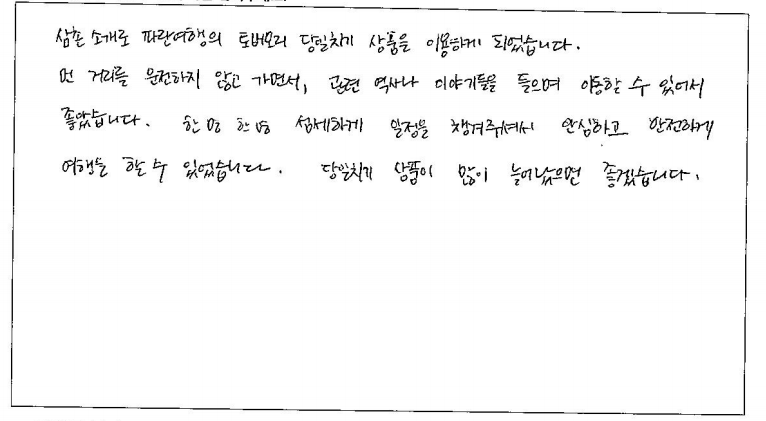 삼촌 소개로 파란여행의 토버모리 당일치기 상품을 이용하게 되었습니다.
먼 거리를 운전하지 않고 가면서, 관련 역사나 이야기들을 들으며 이동할 수 있어서
좋았습니다. 한명 한명 섬세하게 일정을 챙겨주셔서 안심하고 안전하게
여행을 할 수 있었습니다. 당일치기 상품이 많이 늘어났으면 좋겠습니다.